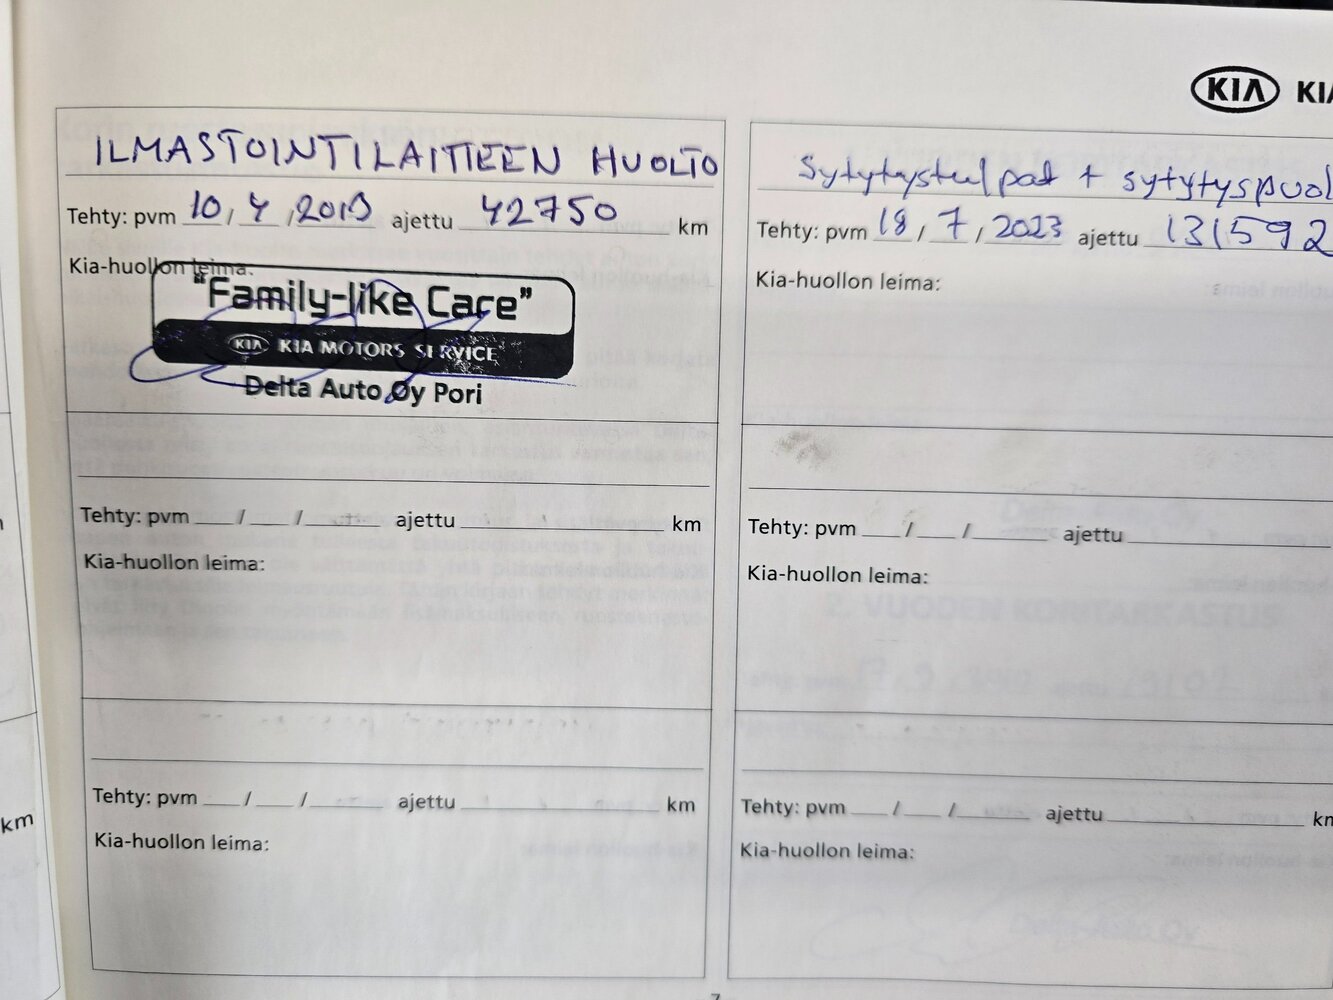 KIA KIA
ILMASTOINTILAITTEEN HUOLTO
Tehty: pvm 10 / 4 / 2019 ajettu 42750 km
Kia-huollon leima:
"Family-like Care"
KIA KIA MOTORS SERVICE
Delta Auto Oy Pori
Tehty: pvm / / ajettu km
Kia-huollon leima:
Tehty: pvm / / ajettu km
Kia-huollon leima:
Sytytystulpat + sytytyspuol
Tehty: pvm 18 / 7 / 2023 ajettu 131592
Kia-huollon leima:
Tehty: pvm / / ajettu
Kia-huollon leima:
2. VUODEN KORITARKASTUS
Tehty: pvm / / ajettu km
Kia-huollon leima:
km
7